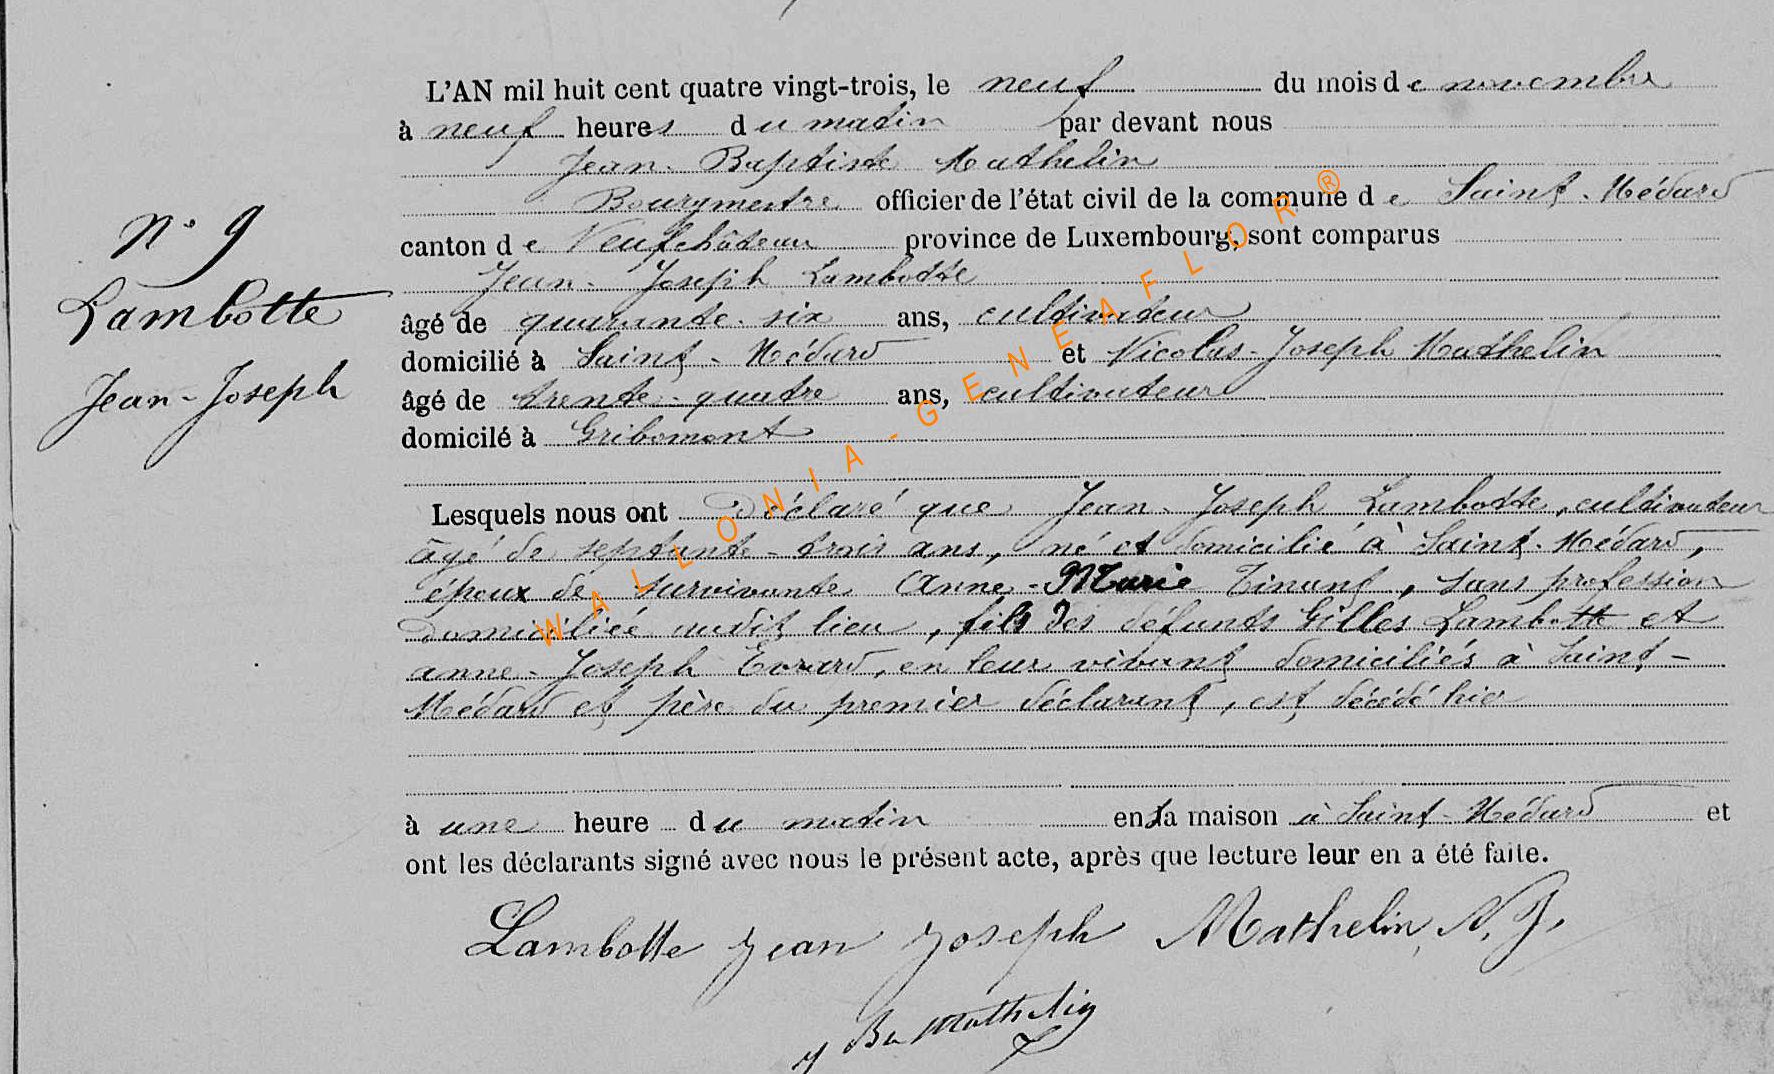 L'AN mil huit cent quatre vingt-trois, le neuf du mois de novembre
à neuf heures du matin par devant nous
Jean-Baptiste Mathelin
Bourgmestre officier de l'état civil de la commune de Saint-Médard
N° 9
canton de Neufchâteau province de Luxembourg, sont comparus
Jean-Joseph Lambotte
Lambotte
âgé de quarante-six ans, cultivateur
domicilié à Saint-Médard et Nicolas-Joseph Mathelin
Jean-Joseph
âgé de trente-quatre ans, cultivateur
domicilé à Gribomont
Lesquels nous ont déclaré que Jean-Joseph Lambotte, cultivateur
âgé de septante-trois ans, né et domicilié à Saint-Médard,
époux de survivante Anne-Marie Tinant, sans profession
domiciliée audit lieu, fils des défunts Gilles Lambotte et
anne-Joseph Evrard, en leur vivant domiciliés à Saint-
Médard et père du premier déclarant, est décédé hier
à une heure du matin en sa maison à Saint-Médard et
ont les déclarants signé avec nous le présent acte, après que lecture leur en a été faite.
Lambotte Jean Joseph Mathelin, N. J.
J Bte Mathelin
WALLONIA-GENEAFLOR®